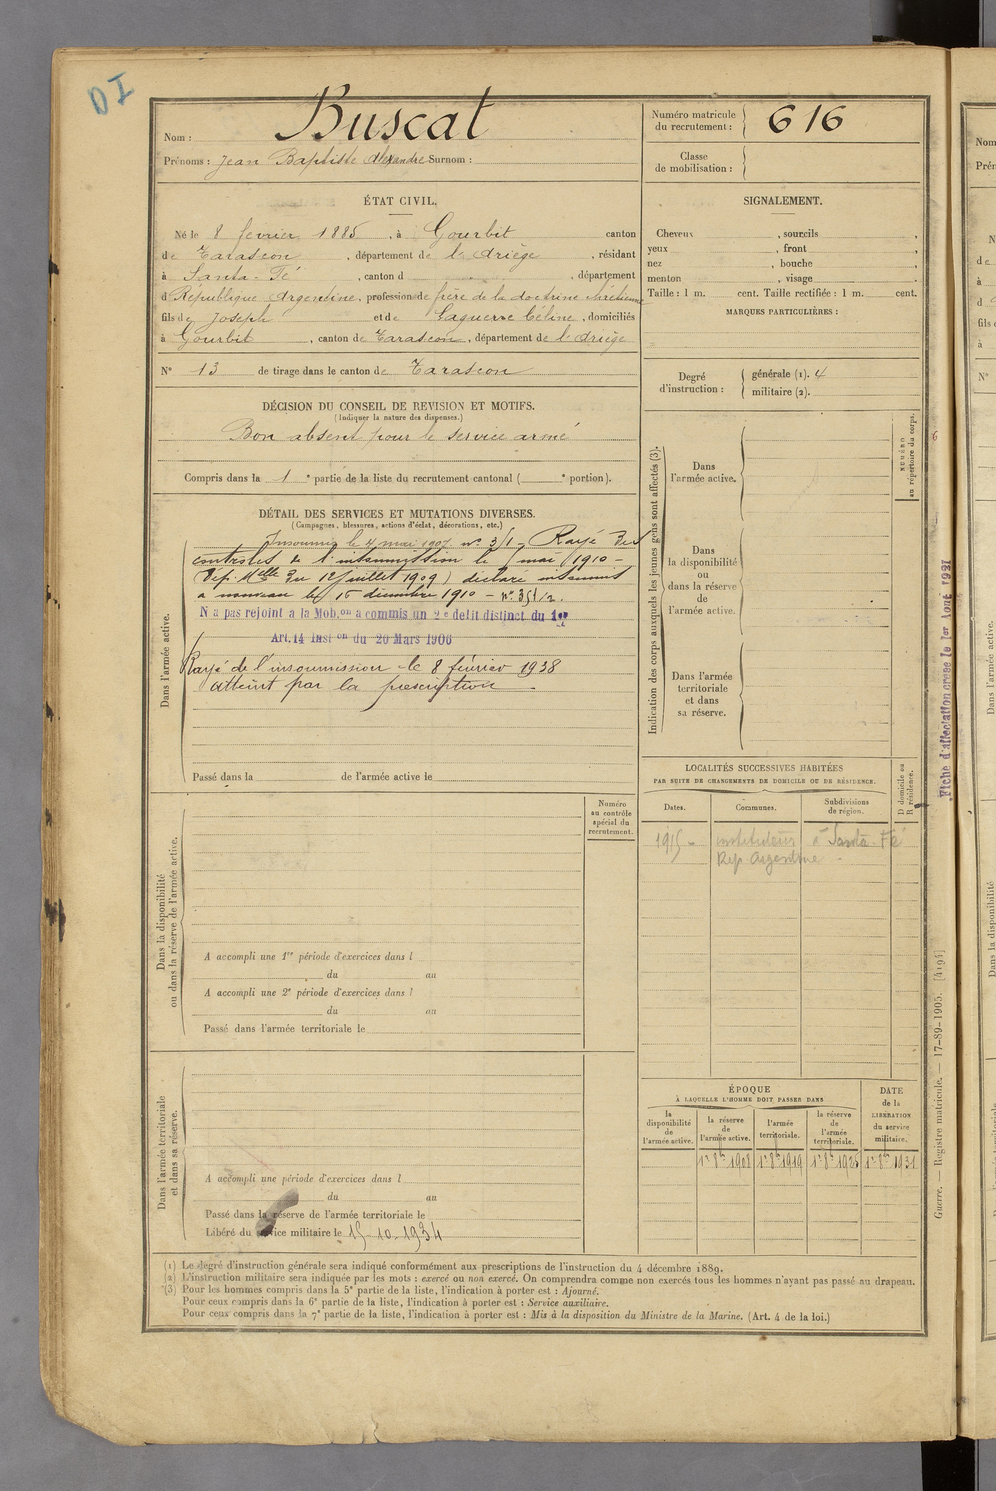 DI
Nom : Buscat
Prénoms : Jean Baptiste Alexandre Surnom :
Numéro matricule du recrutement : 616
Classe de mobilisation :
ÉTAT CIVIL.
Né le 8 février 1885, à Gourbit canton
de Tarascon, département de l'Ariège, résidant
à Santa-Fé, canton d , département
d République Argentine, profession de frère de la doctrine chrétienne
fils de Joseph et de Laguerre Céline, domiciliés
à Gourbit, canton de Tarascon, département de l'Ariège
N° 13 de tirage dans le canton de Tarascon
SIGNALEMENT.
Cheveux , sourcils ,
yeux , front ,
nez , bouche ,
menton , visage .
Taille : 1 m. cent. Taille rectifiée : 1 m. cent.
MARQUES PARTICULIÈRES :
Degré d'instruction : générale (1). 4
militaire (2).
DÉCISION DU CONSEIL DE REVISION ET MOTIFS.
(Indiquer la nature des dispenses.)
Bon absent pour le service armé
Compris dans la 1e partie de la liste du recrutement cantonal ( e portion).
DÉTAIL DES SERVICES ET MUTATIONS DIVERSES.
(Campagnes, blessures, actions d'éclat, décorations, etc.)
Dans l'armée active.
Insoumis le 4 mai 1907 n° 3/1 - Rayé des
contrôles de l'insoumission le mai 1910 -
Dép. Mlle du 12 juillet 1909) déclaré insoumis
a nouveau le 15 décembre 1910 -
N'a pas rejoint a la Mob.on a commis un 2e delit distinct du 1er
Art.14 Inst on du 20 Mars 1906
Rayé de l'insoumission le 8 février 1938
atteint par la prescription
Passé dans la de l'armée active le
Indication des corps auxquels les jeunes gens sont affectés (3).
NUMÉRO au répertoire du corps.
Dans l'armée active.
Dans la disponibilité ou dans la réserve de l'armée active.
Dans l'armée territoriale et dans sa réserve.
Fiche d'affectation créée le 1er Aout 1921
LOCALITÉS SUCCESSIVES HABITÉES
PAR SUITE DE CHANGEMENTS DE DOMICILE OU DE RÉSIDENCE.
D domicile ou R résidence.
Dates. Communes. Subdivisions de région.
1915 - instituteur à Santa-Fé
Rép. Argentine
Numéro au contrôle spécial du recrutement.
Dans la disponibilité ou dans la réserve de l'armée active.
A accompli une 1re période d'exercices dans l
du au
A accompli une 2e période d'exercices dans l
du au
Passé dans l'armée territoriale le
Dans l'armée territoriale et dans sa réserve.
A accompli une période d'exercices dans l
du au
Passé dans la réserve de l'armée territoriale le
Libéré du service militaire le 15-10-1934
ÉPOQUE
À LAQUELLE L'HOMME DOIT PASSER DANS
la disponibilité de l'armée active. la réserve de l'armée active. l'armée territoriale. la réserve de l'armée territoriale.
DATE de la LIBÉRATION du service militaire.
1er 8bre 1908 1er 8bre 1919 1er 8bre 1925 1er 8bre 1931
Guerre. — Registre matricule. — 17-89-1905. [4194]
(1) Le degré d'instruction générale sera indiqué conformément aux prescriptions de l'instruction du 4 décembre 1889.
(2) L'instruction militaire sera indiquée par les mots : exercé ou non exercé. On comprendra comme non exercés tous les hommes n'ayant pas passé au drapeau.
(3) Pour les hommes compris dans la 5e partie de la liste, l'indication à porter est : Ajourné.
Pour ceux compris dans la 6e partie de la liste, l'indication à porter est : Service auxiliaire.
Pour ceux compris dans la 7e partie de la liste, l'indication à porter est : Mis à la disposition du Ministre de la Marine. (Art. 4 de la loi.)